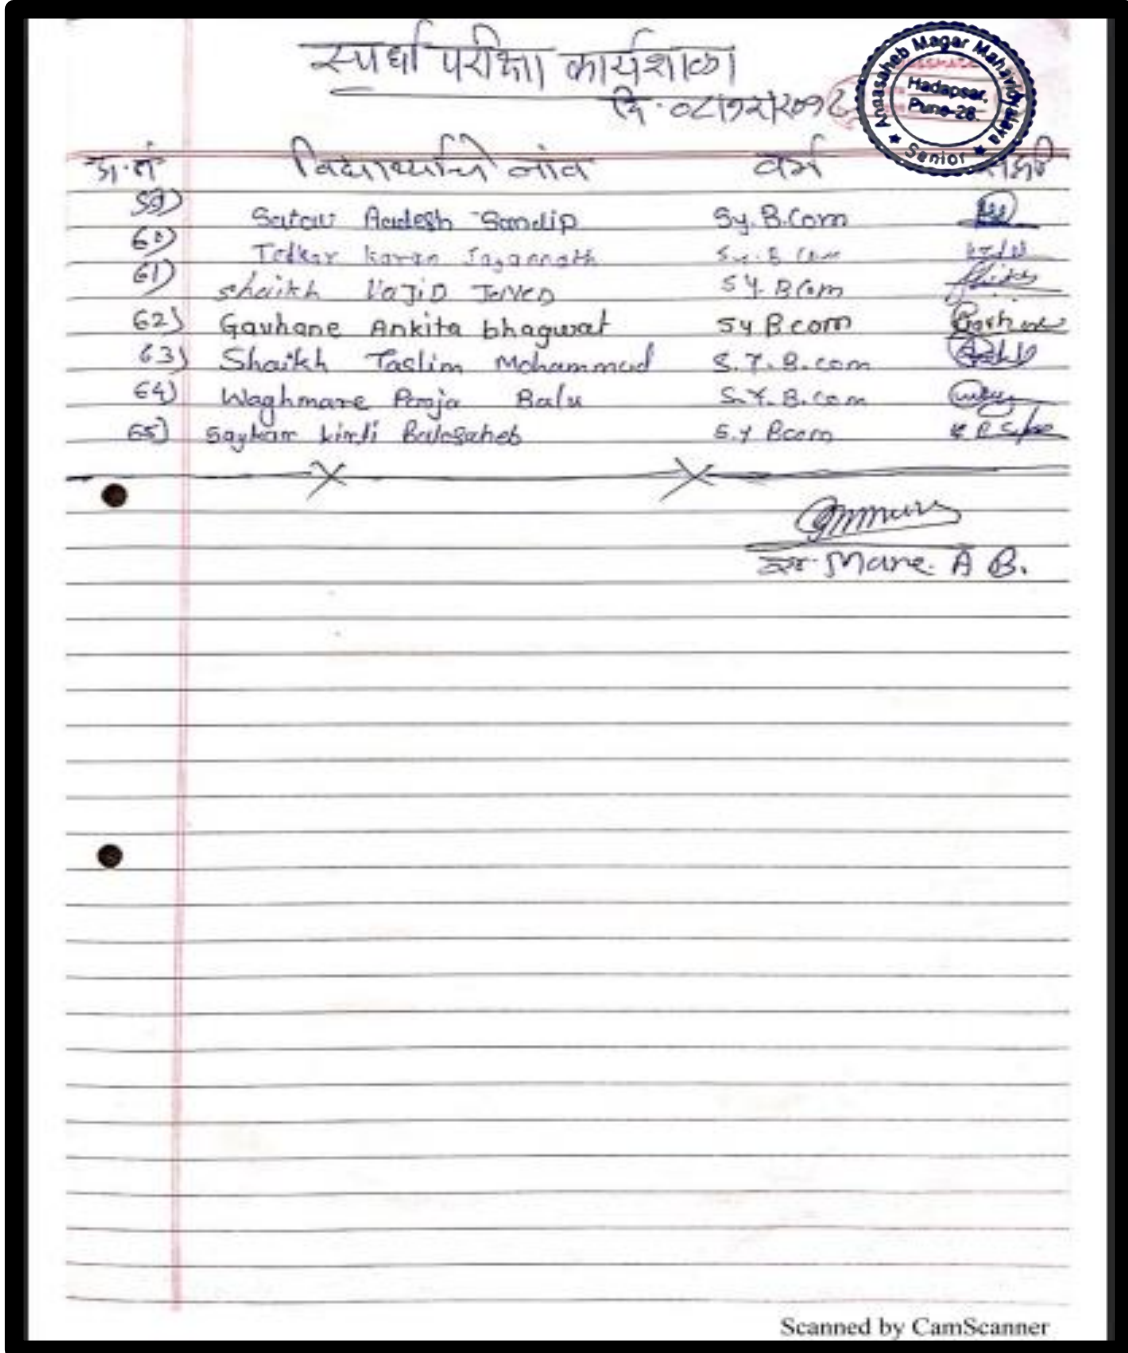 स्पर्धा परीक्षा कार्यशाळा
दि. ०८/१२/२०१८
Annasaheb Magar Mahavidyalaya
Hadapsar,
Pune-28.
★ Senior ★
अ.नं विद्यार्थ्याचे नांव वर्ग
59) Satav Aadesh Sandip Sy. B.Com
60) Karan Jagannath S.y. B.Com
61) Shaikh SY. BCom
62) Gavhane Ankita bhagwat SY B.com
63) Shaikh Taslim Mohammad S.Y. B.com
64) Waghmare Pooja Balu S.Y. B.com
65) Saykar Balasaheb S.Y Bcom
Mane. A B.
Scanned by CamScanner